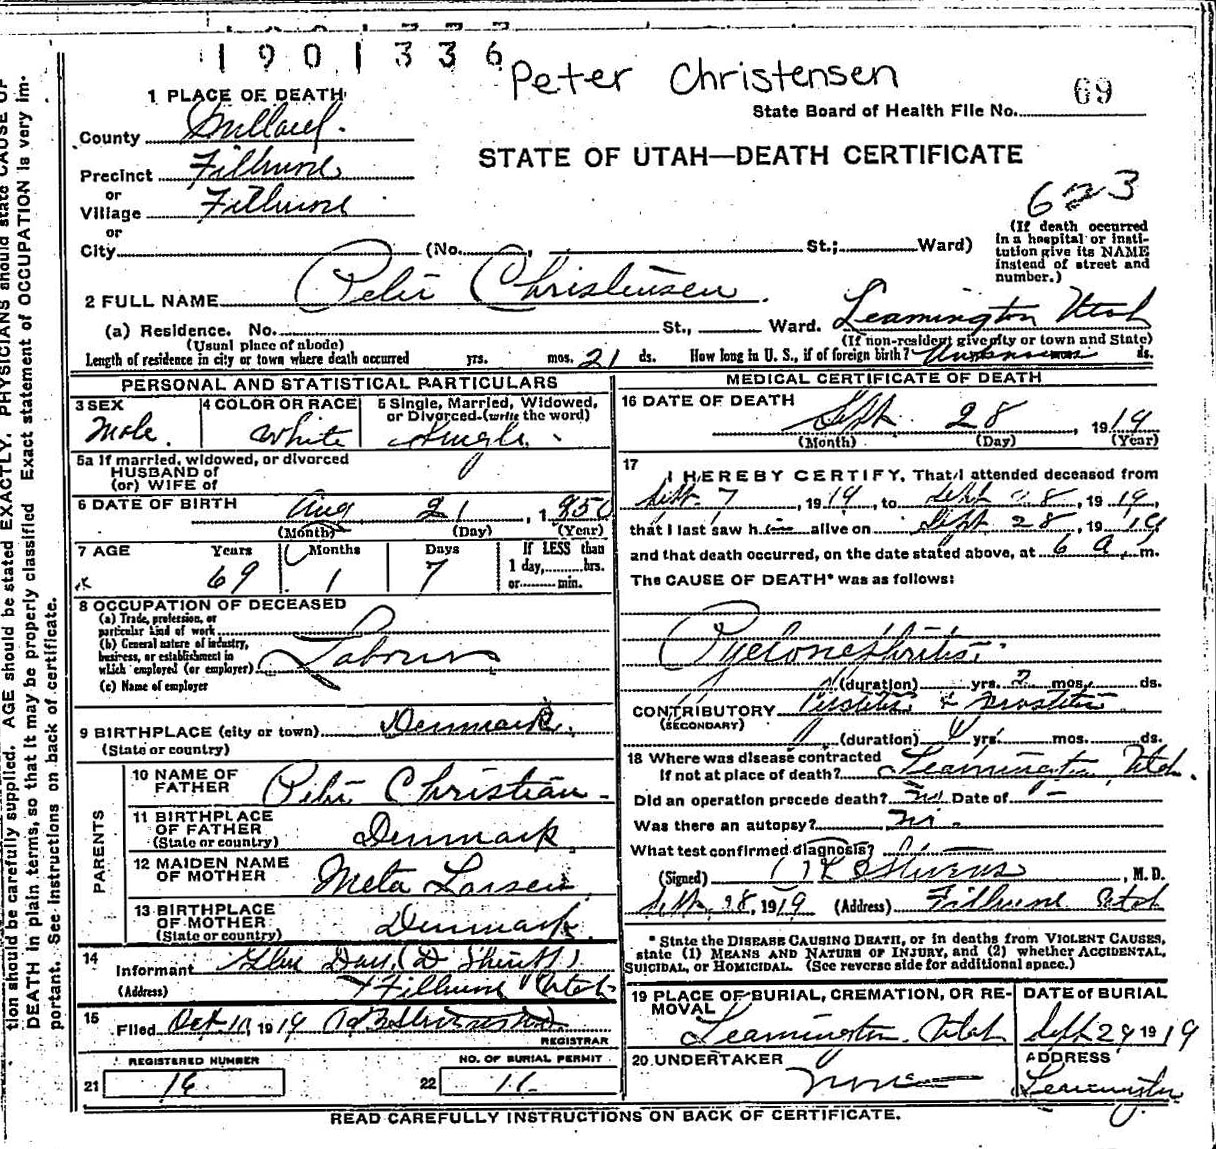 1901336
Peter Christensen
69
State Board of Health File No.
1 PLACE OF DEATH
County Millard.
STATE OF UTAH—DEATH CERTIFICATE
Precinct Fillmore
or
Village Fillmore
623
or
City (No. , St.; Ward)
(If death occurred
in a hospital or insti-
tution give its NAME
instead of street and
number.)
2 FULL NAME Peter Christensen.
(a) Residence. No. St., Ward. Leamington Utah
(Usual place of abode) (If non-resident give city or town and State)
Length of residence in city or town where death occurred yrs. mos. 21 ds. How long in U. S., if of foreign birth? Unknown ds.
PERSONAL AND STATISTICAL PARTICULARS
3 SEX
Male.
4 COLOR OR RACE
White
5 Single, Married, Widowed,
or Divorced. (write the word)
Single.
5a If married, widowed, or divorced
HUSBAND of
(or) WIFE of
6 DATE OF BIRTH Aug 21, 1850
(Month) (Day) (Year)
7 AGE Years Months Days If LESS than
69 1 7 1 day, hrs.
or min.
8 OCCUPATION OF DECEASED
(a) Trade, profession, or
particular kind of work
(b) General nature of industry,
business, or establishment in
which employed (or employer) Laborer
(c) Name of employer
9 BIRTHPLACE (city or town) Denmark.
(State or country)
PARENTS
10 NAME OF
FATHER Peter Christian
11 BIRTHPLACE
OF FATHER Denmark
(State or country)
12 MAIDEN NAME
OF MOTHER Meta Larsen
13 BIRTHPLACE
OF MOTHER Denmark.
(State or country)
14
Informant (D Sheriff)
(Address) Fillmore Utah
15
Filed Oct 10, 1919
REGISTRAR
REGISTERED NUMBER
21 16
NO. OF BURIAL PERMIT
22 11
MEDICAL CERTIFICATE OF DEATH
16 DATE OF DEATH
Sept. 28, 1919
(Month) (Day) (Year)
17
I HEREBY CERTIFY, That I attended deceased from
Sept. 7, 1919, to Sept 28, 1919,
that I last saw him alive on Sept 28, 1919
and that death occurred, on the date stated above, at 6 a.m.
The CAUSE OF DEATH* was as follows:
Pyelonephritis.
(duration) yrs. 2 mos. ds.
CONTRIBUTORY Cystitis & Prostitis
(SECONDARY)
(duration) yrs. mos. ds.
18 Where was disease contracted
If not at place of death? Leamington Utah.
Did an operation precede death? No Date of —
Was there an autopsy? No.
What test confirmed diagnosis?
(Signed) Stevens, M. D.
Sept. 28, 1919 (Address) Fillmore Utah
* State the DISEASE CAUSING DEATH, or in deaths from VIOLENT CAUSES,
state (1) MEANS AND NATURE OF INJURY, and (2) whether ACCIDENTAL,
SUICIDAL, OR HOMICIDAL. (See reverse side for additional space.)
19 PLACE OF BURIAL, CREMATION, OR RE-
MOVAL
Leamington Utah
DATE of BURIAL
Sept 29 1919
20 UNDERTAKER
None
ADDRESS
Leamington
READ CAREFULLY INSTRUCTIONS ON BACK OF CERTIFICATE.
tion should be carefully supplied. AGE should be stated EXACTLY. PHYSICIANS should state CAUSE OF
DEATH in plain terms, so that it may be properly classified. Exact statement of OCCUPATION is very im-
portant. See instructions on back of certificate.